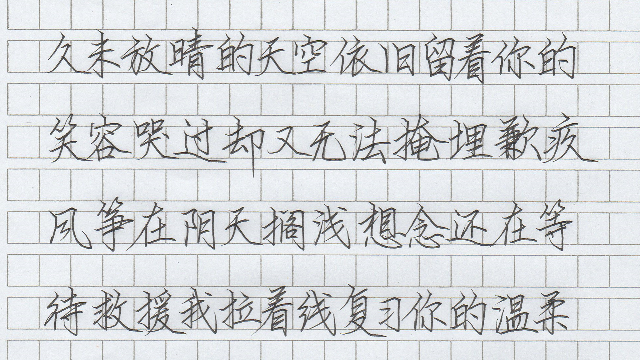 久未放晴的天空依旧留着你的
笑容哭过却又无法掩埋歉疚
风筝在阴天搁浅想念还在等
待救援我拉着线复习你的温柔